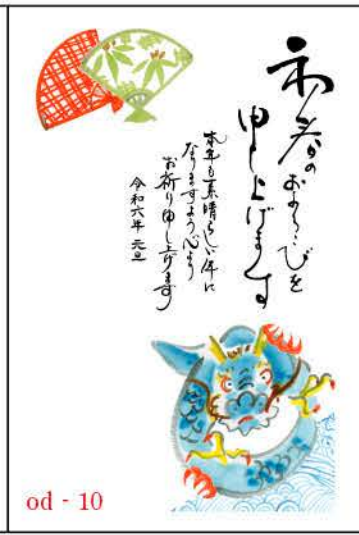 初春のおよろこびを
申し上げます
本年も素晴らしい年に
なりますよう心より
お祈り申し上げます
令和六年 元旦
od - 10